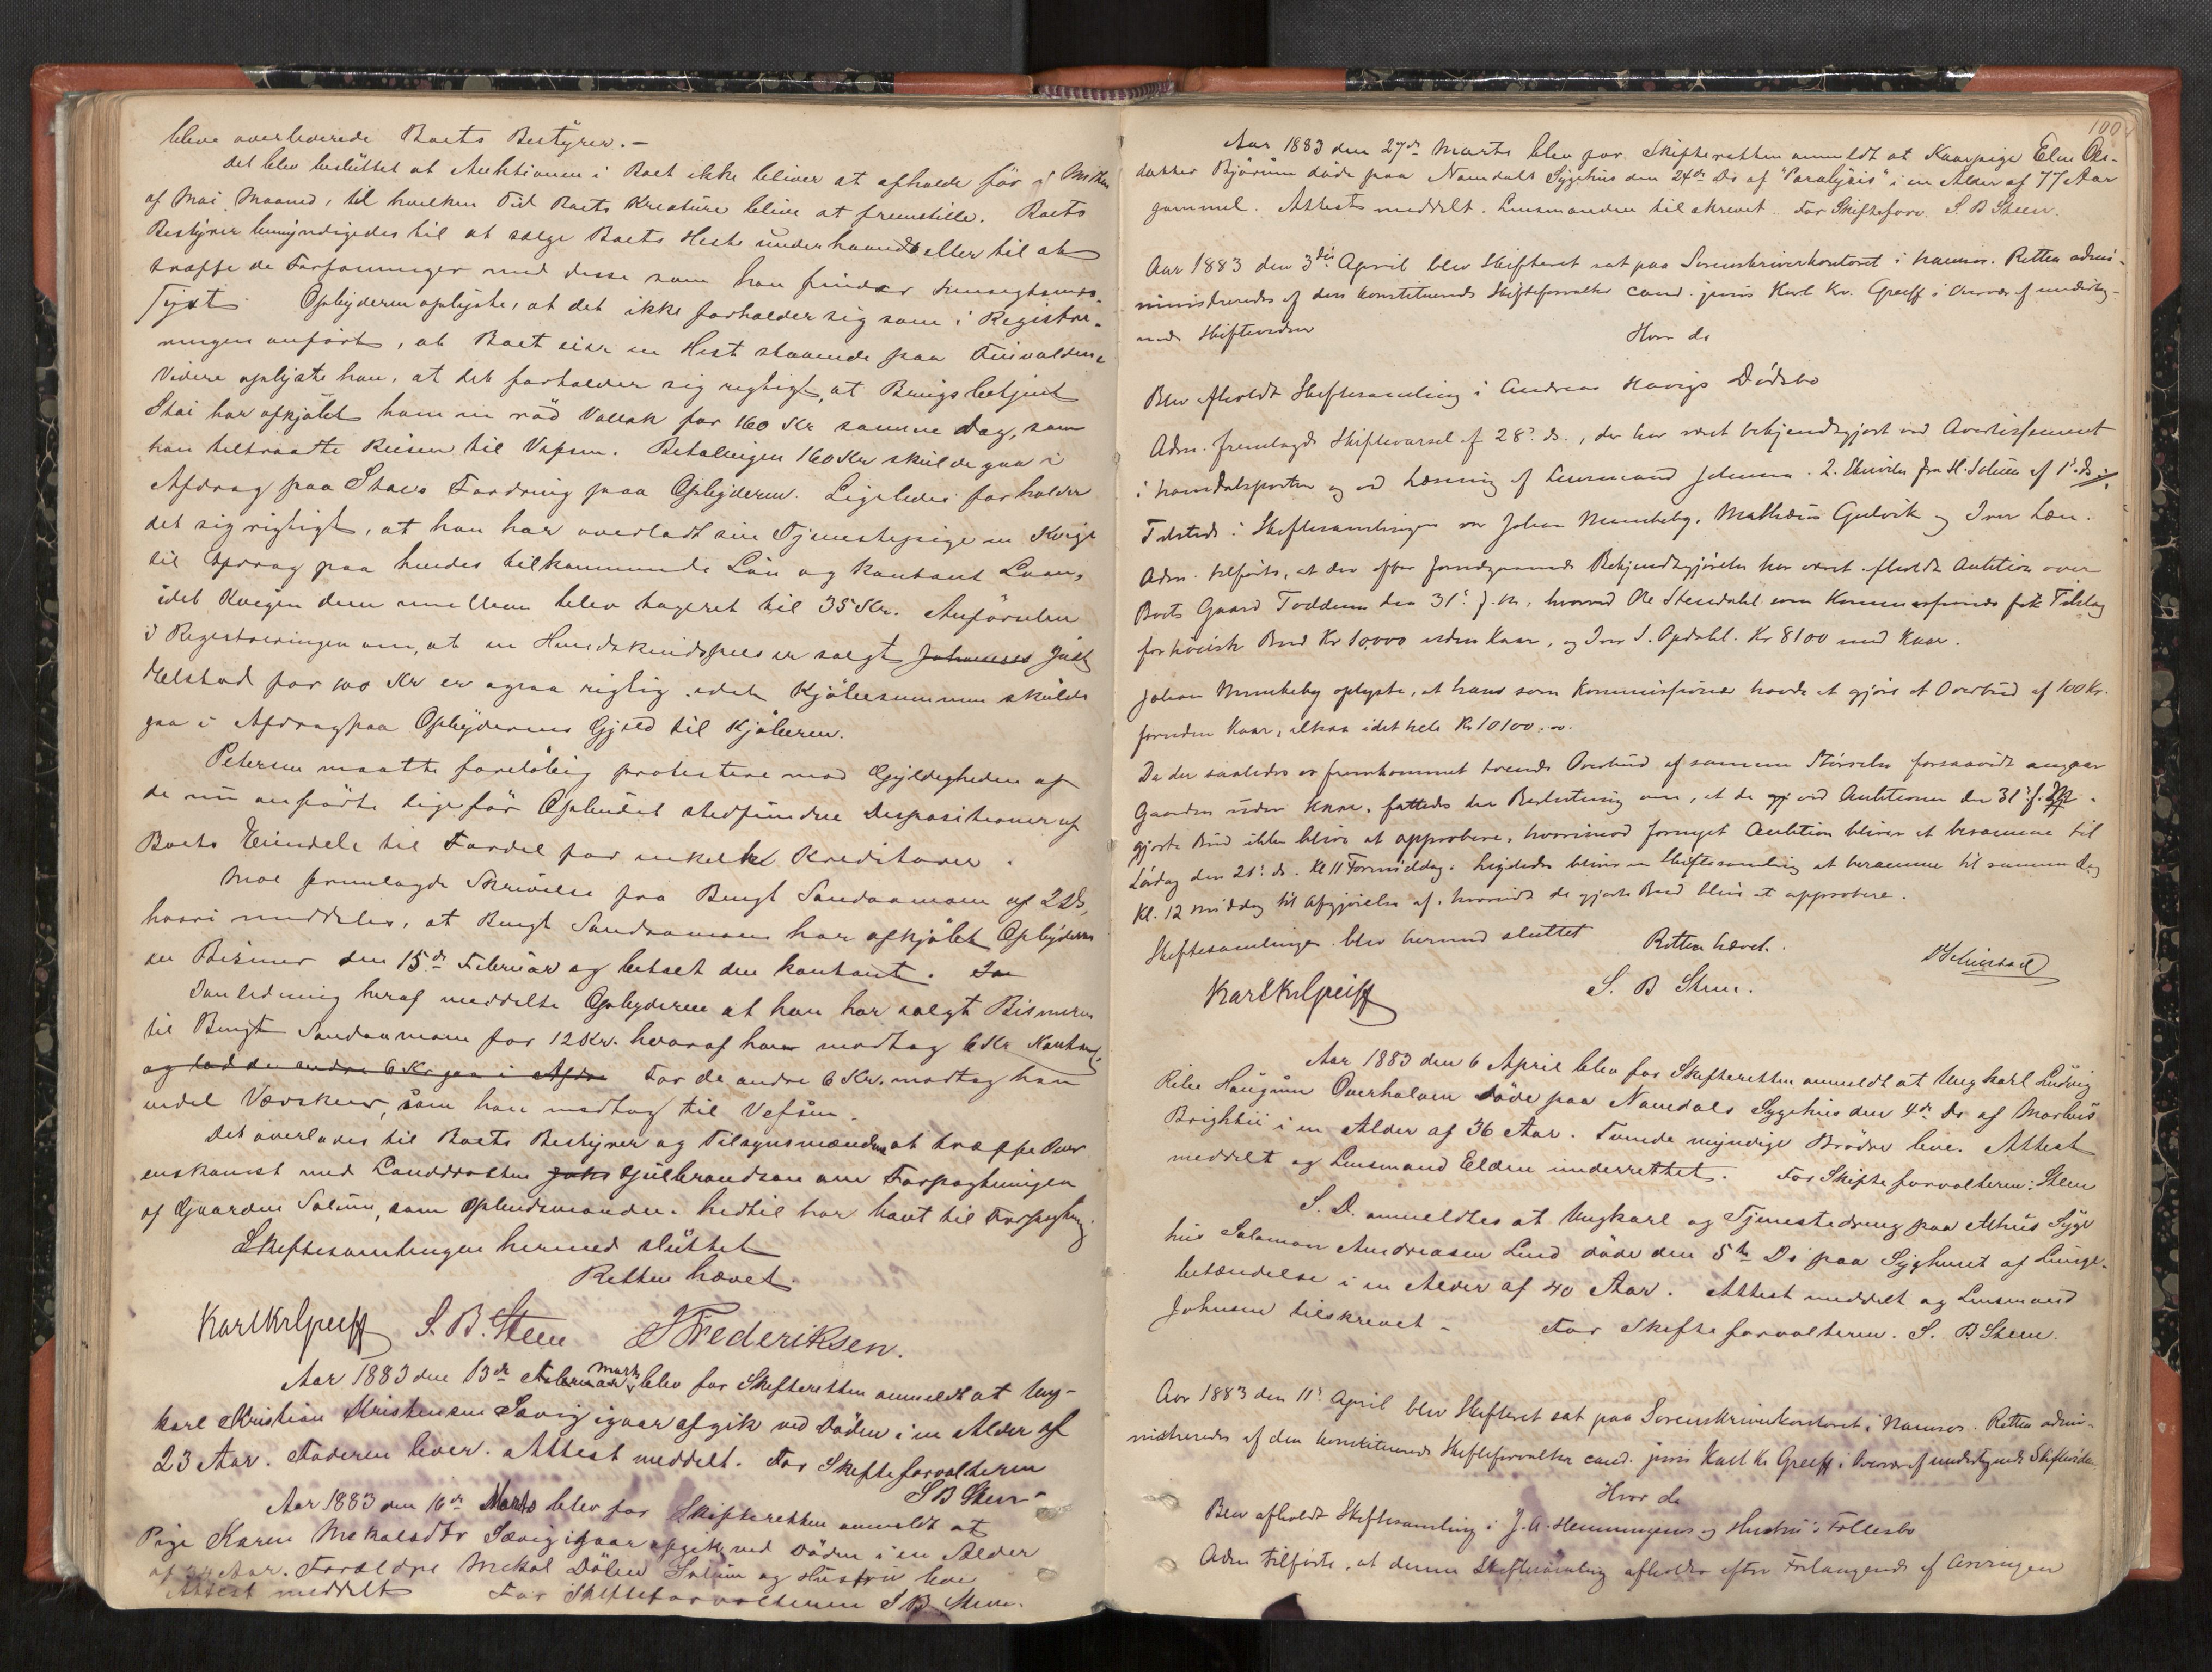 bleve overleverede Boets Bestyrer. –
Det blev besluttet at Auktionen i Boet ikke bliver at afholde før i Midten
af Mai Maaned, til hvilken Tid Boets Kreature blive at fremstille. Boets
Bestyrer bemyndigedes til at sælge Boets Heste underhaands eller til at
træffe de Forføininger med disse som han finder hensigtsmæs-
sigst. Opbyderen oplyste, at det ikke forholder sig som i Registre-
ringen anført, at Boet eier en Hest staaende paa
Videre oplyste han, at det forholder sig rigtigt, at Brugsbetjent
Stai har afkjøbt ham en rød Vallak for 160 Kr samme Dag, som
han tiltraadte Reisen til Vefsen. Betalingen 160 Kr skulde gaa i
Afdrag paa Stais Fordring paa Opbyderen. Ligeledes forholder
det sig rigtigt, at han har overladt sin Tjenestepige en Kvige
til Afdrag paa hendes tilkommende Løn og kontant Laan,
idet Kvigen dem imellem blev tageret til 35 Kr. Anførselen
i Registreringen om, at en Hundskindspels er solgt Johannes Just
Helstad for 100 Kr er ogsaa rigtig idet Kjøbesummen skulde
gaa i Afdrag paa Opbyderens Gjæld til Kjøberen.
Petersen maatte foreløbig protestere mod Gyldigheden af
de nu anførte lige før Opbudet stedfundne Dispositioner af
Boets Eiendele til Fordel for enkelte Kreditorer.
Moe fremlagde Skrivelse fra Bengt Sandaamoen af 2 Ds,
hvori meddeles, at Bengt Sandaamoen har afkjøbt Opbyderen
en Bismer den 15de Februar og betalt den kontant. I
Anledning heraf meddelte Opbyderen at han har solgt Bismeren
til Bengt Sandaamoen for 12 Kr. hvoraf han modtog 6 Kr Kontant
og lod de andre 6 Kr gaa i Afdra For de andre 6 Kr. modtog han
endel , som han medtog til Vefsen.
Det overlades til Boets Bestyrer og Tilsynsmændene at træffe Over
enskomst med Landdrosten Joks Gulbrandsen om Forpagtningen
af Gaarden Solum, som Opbudsmanden hidtil har havt til Forpagtning
Skiftesamlingen hermed sluttet
Retten hævet.
Karl Kr Greiff S. B. Steen J Frederiksen.
Aar 1883 den 13de Februar Marts blev for Skifteretten anmeldt at Ung-
karl Kristian Kristensen Sævig igaar afgik ved Døden i en Alder af
23 Aar. Faderen lever. Attest meddelt. For Skifteforvalteren
S B Steen
Aar 1883 den 16de Marts blev for Skifteretten anmeldt at
Pige Karen Mekalsdtr Sævig igaar afgik ved Døden i en Alder
af Aar. Forældre Mekal Sølum og Hustru leve
Attest meddelt For Skifteforvalteren S B Steen.
100
Aar 1883 den 27de Marts blev for Skifteretten anmeldt at Kaarpige Elen Ols-
datter Bjørum døde paa Namdals Sygehus den 24de Ds af "Paralysis" i en Alder af 77 Aar
gammel. Attest meddelt. Lensmanden tilskrevet. For Skifteforv. S. B Steen.
Aar 1883 den 3die April blev Skifteret sat paa Sorenskriverkontoret i Namsos. Retten admi-
ministreredes af den konstituerede Skifteforvalter cand. juris Karl Kr. Greiff i Overvær af underteg-
nede Skiftevidner
Hvor da
Blev afholdt Skiftesamling i Andreas Havigs Dødsbo
Adm. fremlagde Skiftevarsel af 28. ds., der har været bekjendtgjort ved Avertissement
i Namdalsposten og ved Læsning af Lensmand Johnsen. 2. Skrivelse fra H. Solum af 1. ds.
Tilstede i Skiftesamlingen var Johan Mumheby, Mathæus Gulvik og Iver Lien.
Adm. tilførte, at der efter foregaaende Bekjendtgjørelse har været afholdt Auktion over
Boets Gaard Toddum den 31. f. M., hvorved Ole Stendahl som Kommissionær fik Tilslag
for høieste Bud Kr 10,000 uden Kaar, og Iver J. Opdahl. Kr 8100 med Kaar.
Johan Mumheby oplyste, at han som Kommissionær havde at gjøre et Overbud af 100 Kr.
foruden Kaar, altsaa idet hele Kr 10100.00.
Da der saaledes er fremkommet tvende Overbud af samme Størrelse forsaavidt angaar
Gaarden uden Kaar, fattedes den Beslutning om, at de ved Auktionen den 31. f. M.
gjorte Bud ikke blive at approbere, hvorimod fornyet Auktion bliver at berammes til
Lørdag den 21. ds. Kl 11 Formiddag. Ligeledes bliver en Skiftesamling at beramme til samme Dag
Kl. 12 Middag til Afgjørelse af, hvorvidt de gjorte Bud blive at approbere.
Skiftesamlingen blev hermed sluttet Retten hævet.
Karl Kr Greiff S. B Steen.
Aar 1883 den 6 April blev for Skifteretten anmeldt at Ungkarl Ludvig
Haugum Overhalven døde paa Namdals Sygehus den 4de Ds af Morbus
Brightii i en Alder af 36 Aar. Tvende myndige Brødre leve. Attest
meddelt og Lensmand Elden underrettet. For Skifteforvalteren: Steen
S. D. anmeldtes at Ungkarl og Tjenestedreng paa Syge
hus Salamon Andreasen Lund døde den 5te Ds paa Sygehuset af Lunge-
betændelse i en Alder af 40 Aar. Attest meddelt og Lensmand
Johnsen tilskrevet – For Skifteforvalteren. S. B Steen.
Aar 1883 den 11. April blev Skifteret sat paa Sorenskriverkontoret i Namsos. Retten admi-
nistreredes af den konstituerede Skifteforvalter cand. juris Karl Kr Greiff i Overvær af undertegnede Skiftevidner
Hvor da
Blev afholdt Skiftesamling i J. A. Hemmingsens og Hustru's Fællesbo
Adm tilførte, at denne Skiftesamling afholdes efter Forlangende af Arvingen